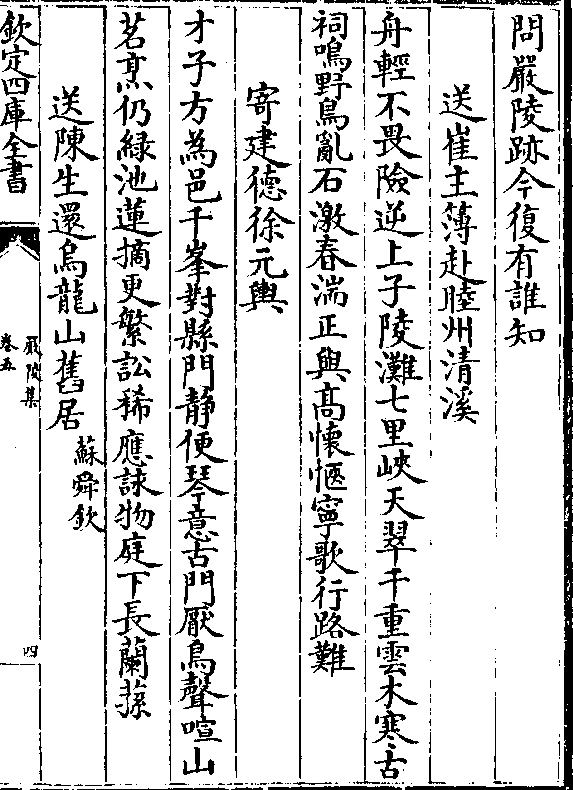 問嚴陵跡今復有誰知
送崔主簿赴睦州清溪
舟輕不畏險逆上子陵灘七里峽天翠千重雲木寒古
祠鳴野鳥亂石激春湍正與髙懷愜寧歌行路難
寄建德徐元輿
才子方為邑千峯對縣門靜便琴意古門厭鳥聲喧山
茗烹仍緑池蓮摘更繁訟稀應詠物庭下長蘭蓀
送陳生還烏龍山舊居 蘇舜欽
欽定四庫全書
嚴陵集
卷五
四